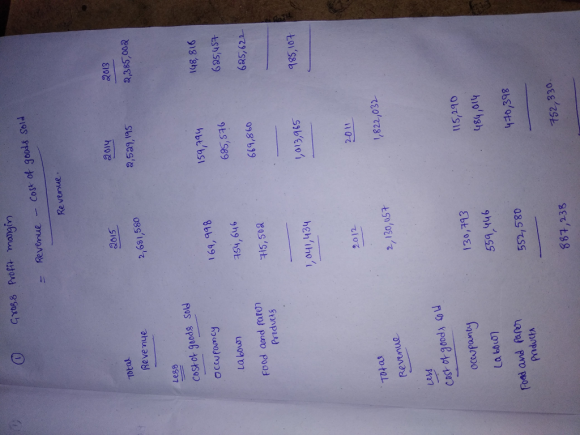 ① Gross Profit margin
= Revenue - Cost of goods sold
Revenue.
2015 2014 2013
Total 2,681,580 2,529,195 2,385,002
Revenue
Less
Cost of goods sold
Occupancy 169,998 159,794 148,816
Labour 754,646 685,576 625,457
Food and paper 715,502 669,860 625,622
Products
1,041,434 1,013,965 985,107
2012 2011
Total 2,130,057 1,822,032
Revenue
Less
Cost of goods sold
Occupancy 130,793 115,290
Labour 559,446 484,014
Food and paper 552,580 470,398
Products
887,238 752,330